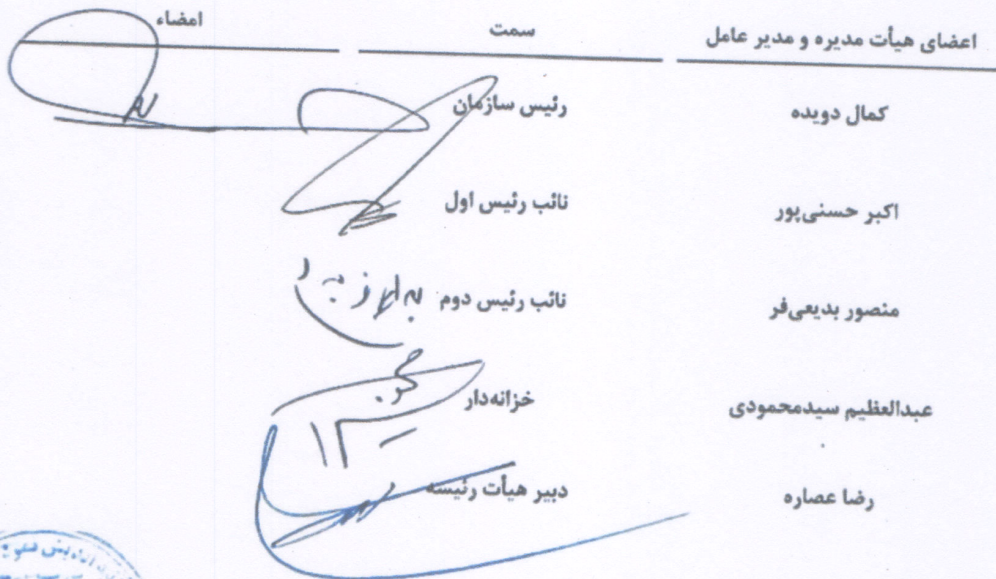 اعضای هیأت مدیره و مدیر عامل سمت امضاء
کمال دویده رئیس سازمان
اکبر حسنی‌پور نائب رئیس اول
منصور بدیعی‌فر نائب رئیس دوم
عبدالعظیم سیدمحمودی خزانه‌دار
رضا عصاره دبیر هیأت رئیسه